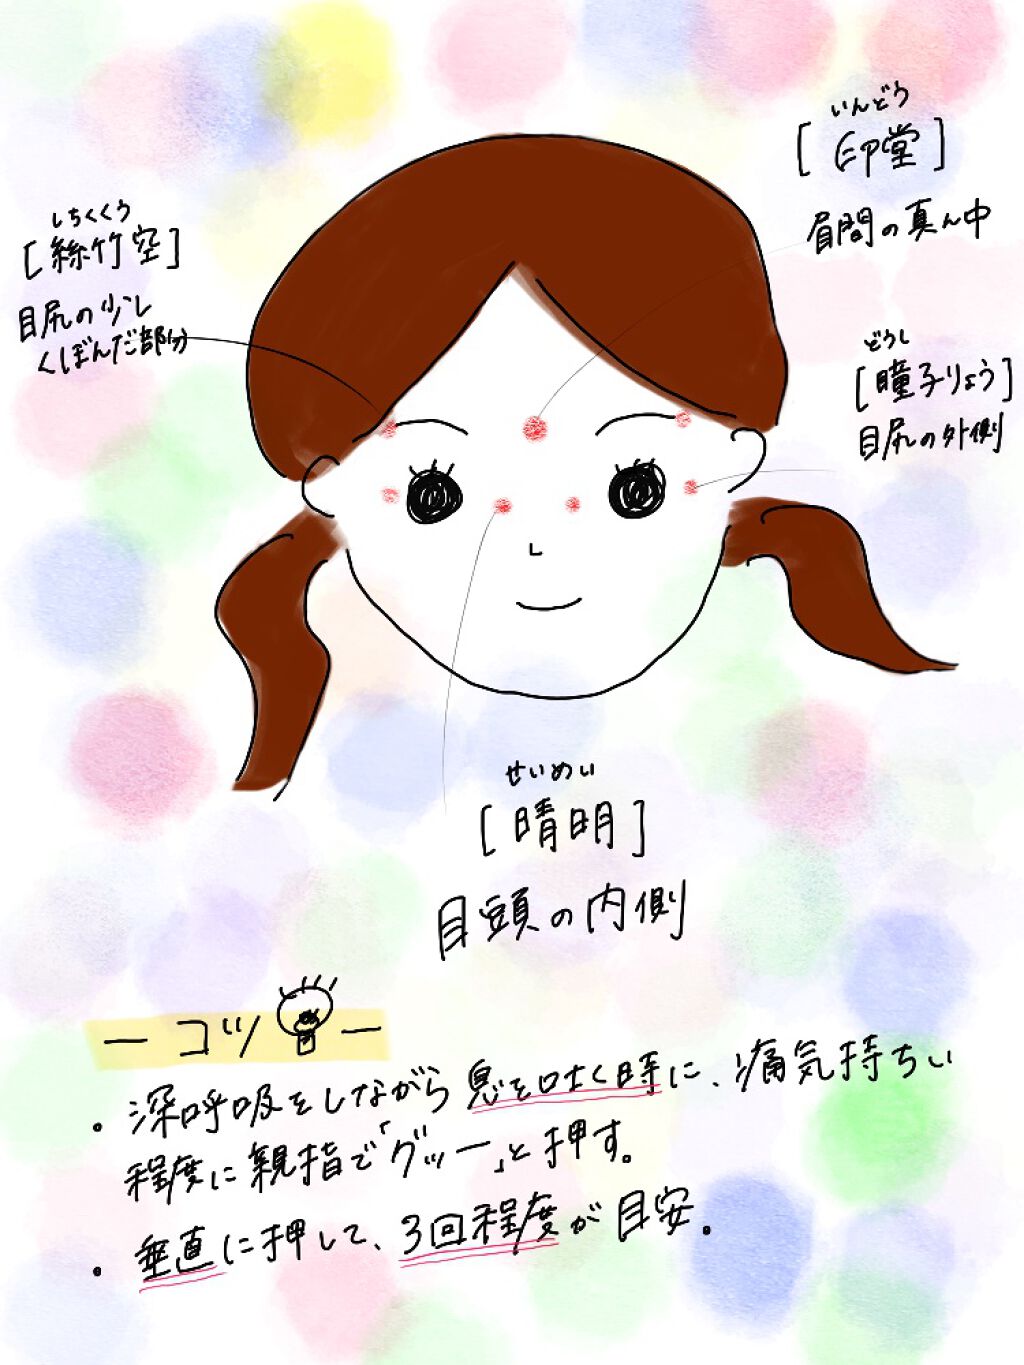 いんどう
[印堂]
眉間の真ん中
しちくくう
[絲竹空]
目尻の少し
くぼんだ部分
どうし
[瞳子りょう]
目尻の外側
せいめい
[晴明]
目頭の内側
ーコツー
・深呼吸をしながら息を吐く時に、痛気持ちい
程度に親指で「グッー」と押す。
・垂直に押して、3回程度が目安。